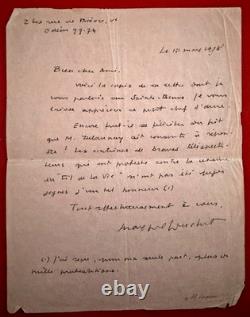 2 bis rue de Bièvre, Ve
Odéon 99-74
Le 15 mars 1958
Bien cher Ami,
Voici la copie de la lettre dont je
vous parlais aux Sainte-Beuve. Je vous
laisse apprécier ce petit chef d'œuvre.
Encore faut-il se féliciter du fait
que M. Delaunay ait consenti à répon-
dre ! Les centaines de braves téléspecta-
teurs qui ont protesté contre la
du "Fil de la Vie" n'ont pas été jugés
dignes d'un tel honneur (1)
Tout affectueusement à vous,
(1) J'ai reçu, pour ma seule part, plus de
mille protestations.
© H. Lemoin